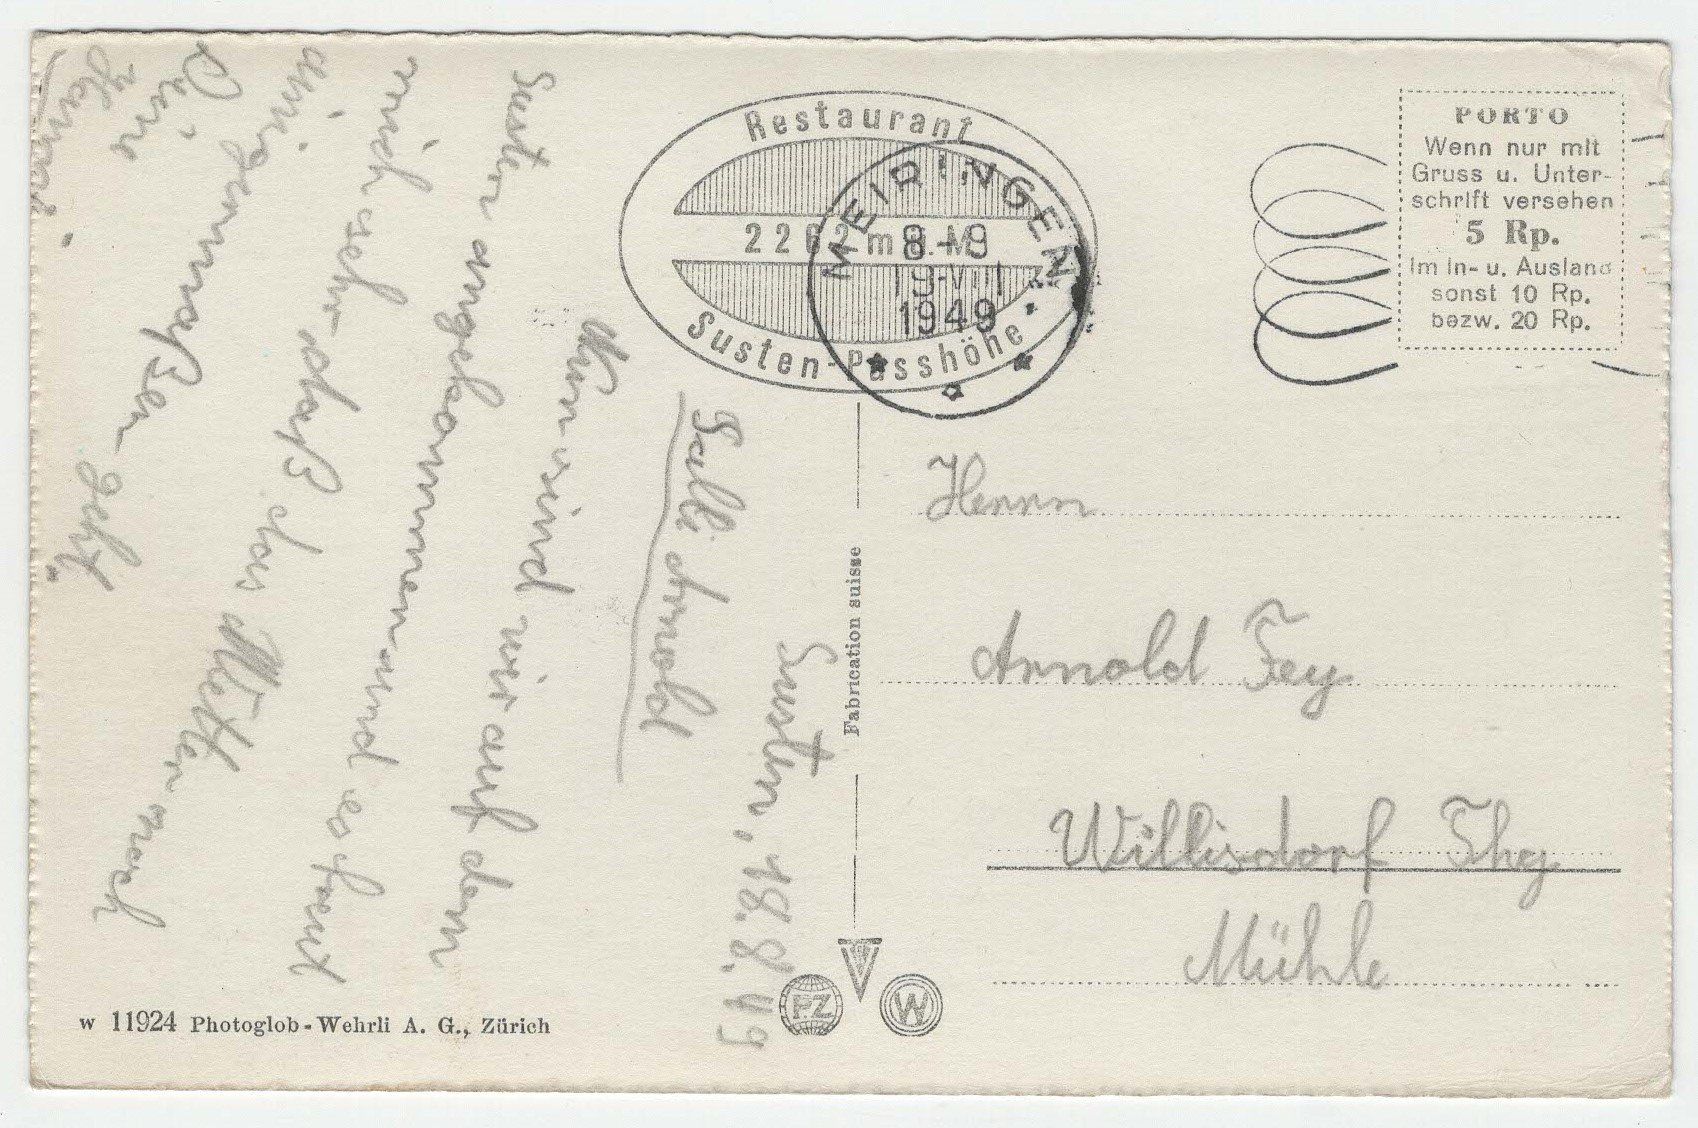 Susten, 18.8.49
Salli Arnold
Nun sind wir auf dem
Susten angekommen und es freut
mich sehr, daß das Wetter noch
einigermaßen geht.
Deine
Hanni.
Restaurant
2262 m ü.M.
Susten-Passhöhe
MEIRINGEN
8-9
19-VIII
1949
PORTO
Wenn nur mit
Gruss u. Unter-
schrift versehen
5 Rp.
Im In- u. Ausland
sonst 10 Rp.
bezw. 20 Rp.
Herrn
Arnold Fey
Willisdorf Thg
Mühle
Fabrication suisse
PZ
W
w 11924 Photoglob-Wehrli A. G., Zürich